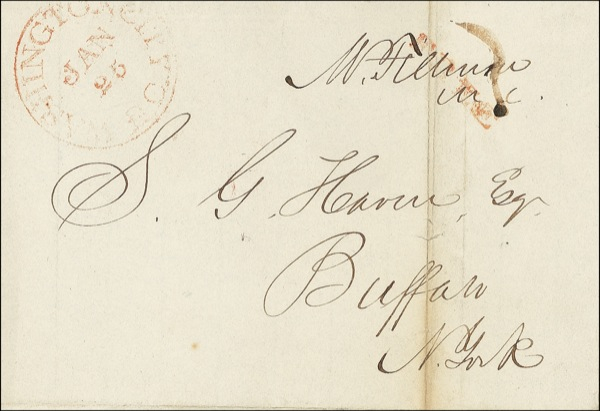 WASHINGTON CITY D.C.
JAN
25
M. Fillmore
M C.
S. G. Haven, Esq.
Buffalo
N. York